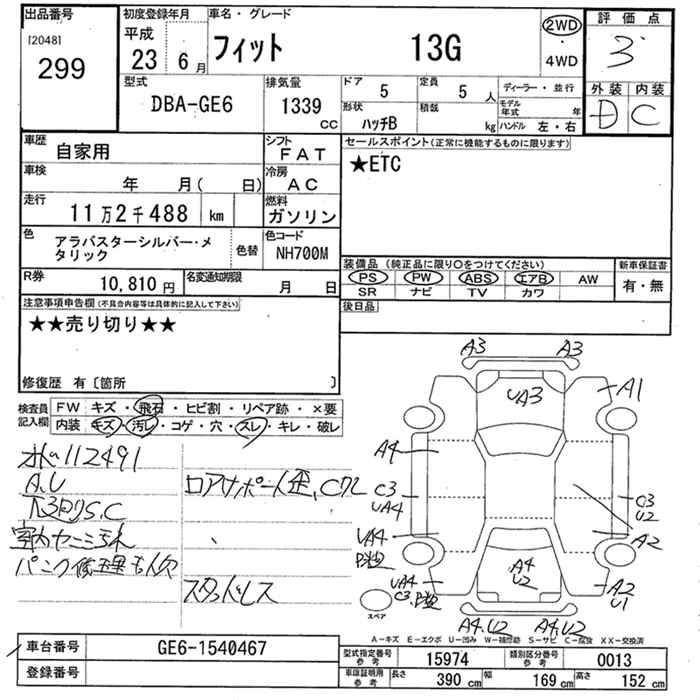 出品番号
[2048]
299
初度登録年月
平成
23 6月
車名・グレード
フィット 13G
2WD
・
4WD
評価点
3
外装 内装
D C
型式
DBA-GE6
排気量
1339
CC
ドア 5
定員 5 人
ディーラー・並行
形状 ハッチB
積載 kg
モデル年式 年
ハンドル 左・右
車歴
自家用
シフト
FAT
車検
年 月( 日)
冷房
AC
走行
11万2千488 km
燃料
ガソリン
色
アラバスターシルバー・メタリック
色替
色コード
NH700M
R券
10,810円
名変通知期限
月 日
セールスポイント(正常に機能するものに限ります)
★ETC
装備品(純正品に限り○をつけてください)
PS PW ABS エアB AW
SR ナビ TV カワ
新車保証書
有・無
後日品
注意事項申告欄(不具合内容等は具体的に記入して下さい)
★★売り切り★★
修復歴 有〔箇所 〕
検査員
記入欄
FW キズ・飛石・ヒビ割・リペア跡・×要
内装 キズ・汚レ・コゲ・穴・スレ・キレ・破レ
112491
A.U
S.C
ロアサポート歪、
パンク修理キット欠
スタッドレス
A3 A3
UA3
A1
A4
C3
UA4
C3
U2
UA4
A2
A4
U2
UA4
C3
A2
U1
A4.U2 A4.U2
スペア
A-キズ E-エクボ U-凹み W-補修跡 S-サビ C-腐蝕 XX-交換済
車台番号 GE6-1540467
登録番号
型式指定番号
参考
15974
類別区分番号
参考
0013
車庫証明用
参考
長さ 390 cm
幅 169 cm
高さ 152 cm